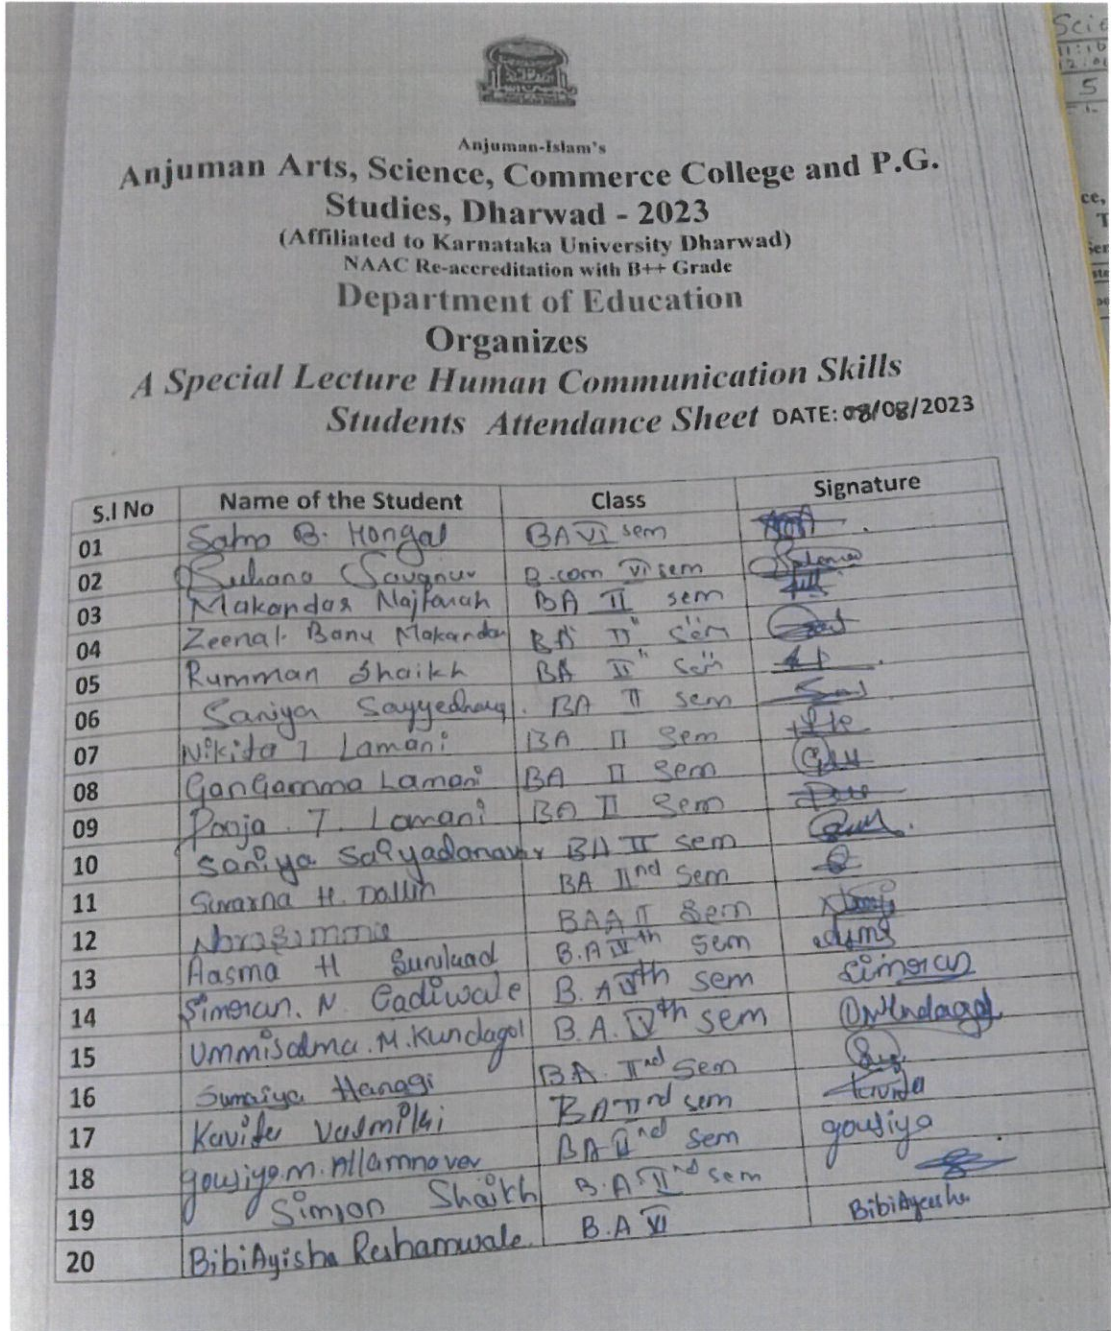 Scie
11:10
5
Anjuman-Islam's
Anjuman Arts, Science, Commerce College and P.G.
Studies, Dharwad - 2023
(Affiliated to Karnataka University Dharwad)
NAAC Re-accreditation with B++ Grade
Department of Education
Organizes
A Special Lecture Human Communication Skills
Students Attendance Sheet DATE: 08/08/2023
S.I No Name of the Student Class Signature
01 B. Hongal BA VI sem
02 Suhana Savanur B.com VI sem
03 Makandar BA II sem
04 Zeenat Banu Makandar BA II" sem
05 Rumman Shaikh BA II" sem
06 Saniya BA II sem
07 Nikita T Lamani BA II Sem
08 GanGamma Lamani BA II Sem
09 Pooja. T. Lamani BA II Sem
10 Saniya BA II sem
11 Suvarna H. BA IInd Sem
12 BAA II Sem
13 Aasma H B.A sem
14 Simran. N. Gadiwale B.A sem Simran
15 Ummisalma.M.Kundagol B.A. Vth sem
16 Sumaiya Hanggi BA. IInd Sem
17 Kavita Valmiki BA sem Kavita
18 gousiya.m. BA IInd sem gousiya
19 Simran Shaikh B.A IInd sem
20 BibiAyisha Reshamwale. B.A VI BibiAyesha